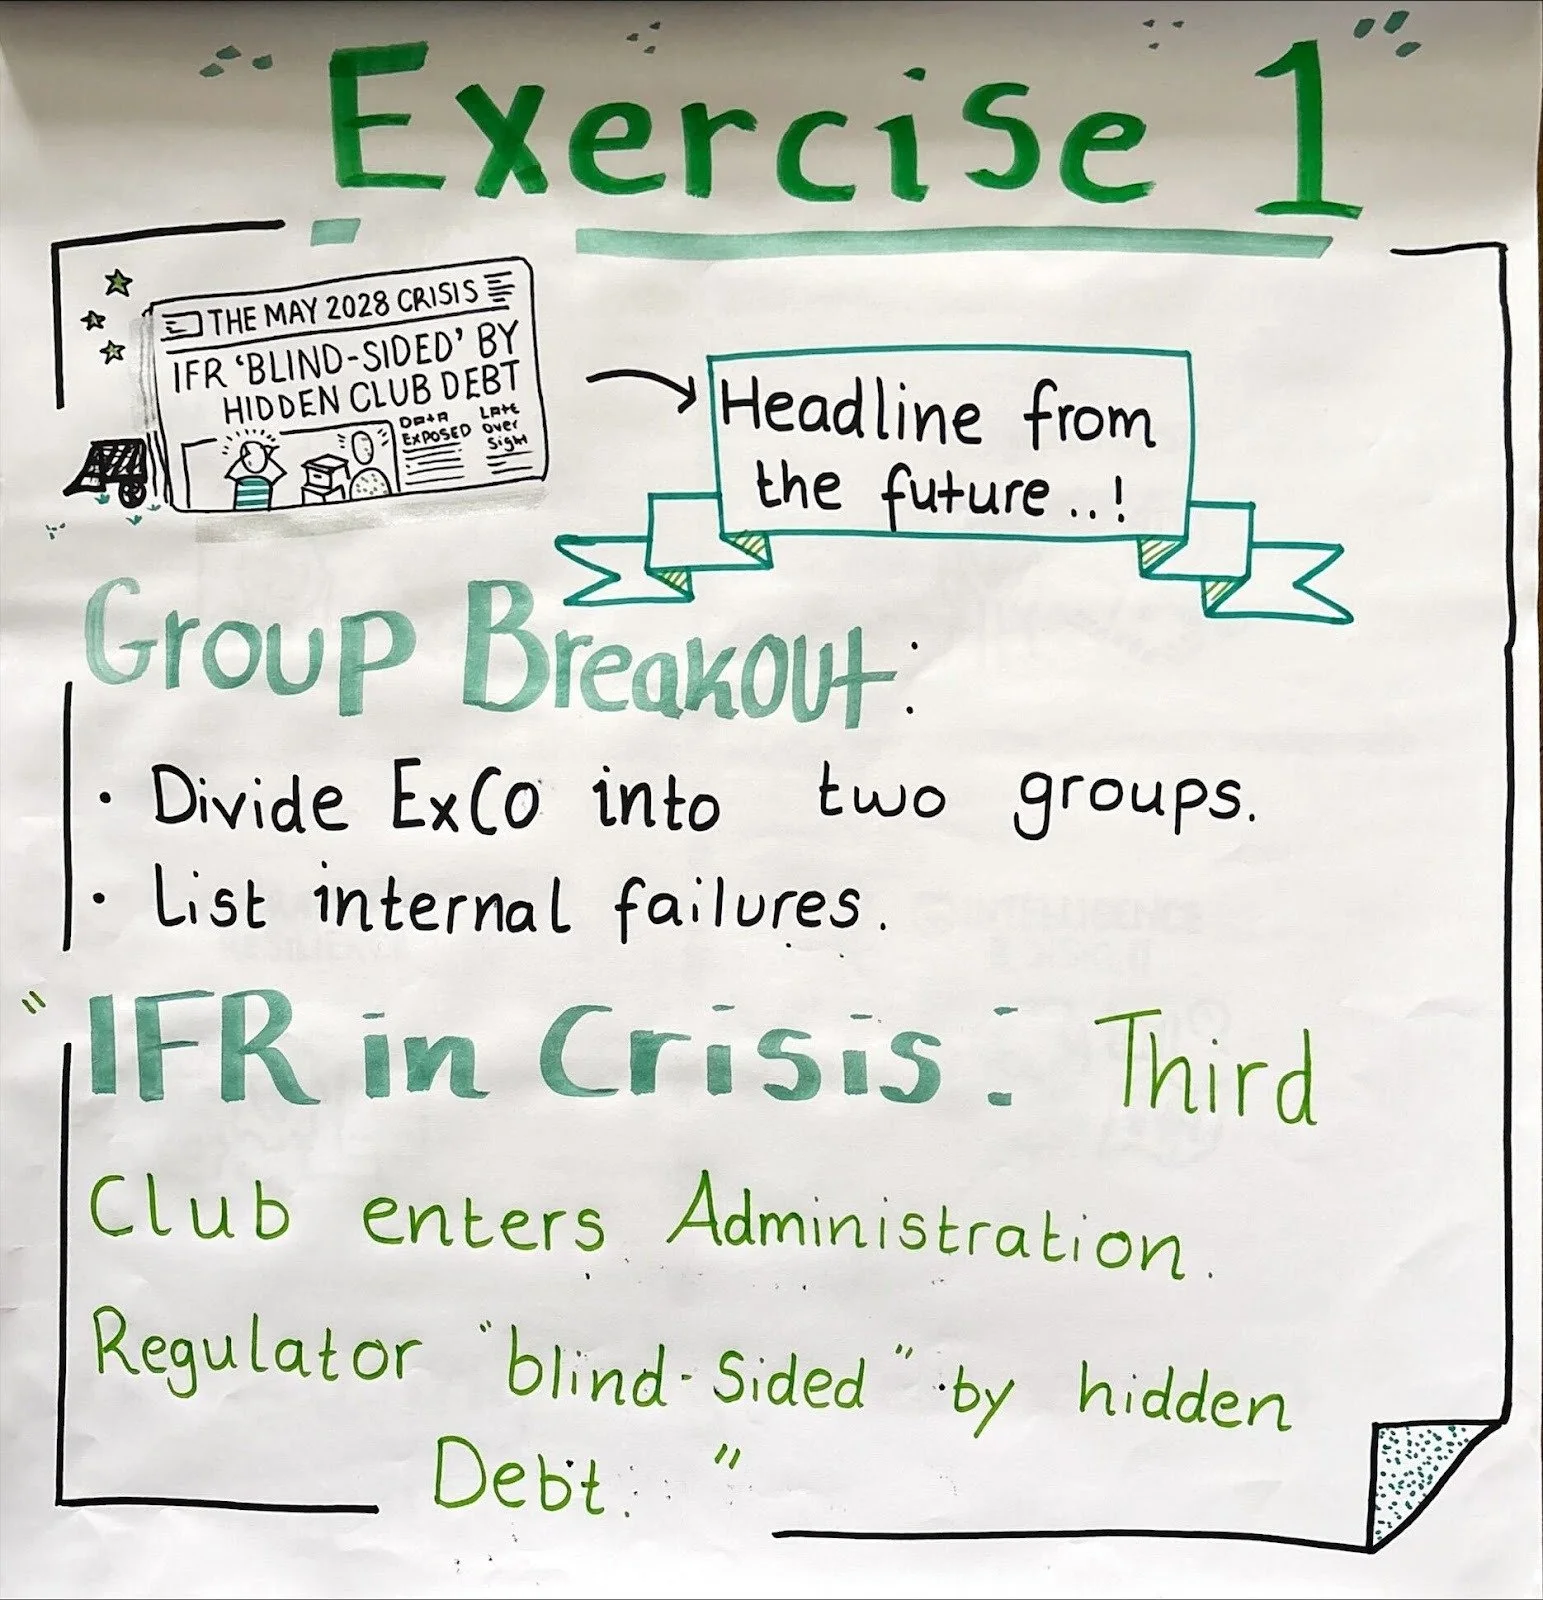 Exercise 1
THE MAY 2028 CRISIS
IFR 'BLIND-SIDED' BY
HIDDEN CLUB DEBT
DATA
EXPOSED
LATE
Over
Sight
Headline from
the future...!
Group Breakout:
· Divide ExCo into two groups.
· List internal failures.
"IFR in Crisis: Third
Club enters Administration.
Regulator "blind-Sided" by hidden
Debt."